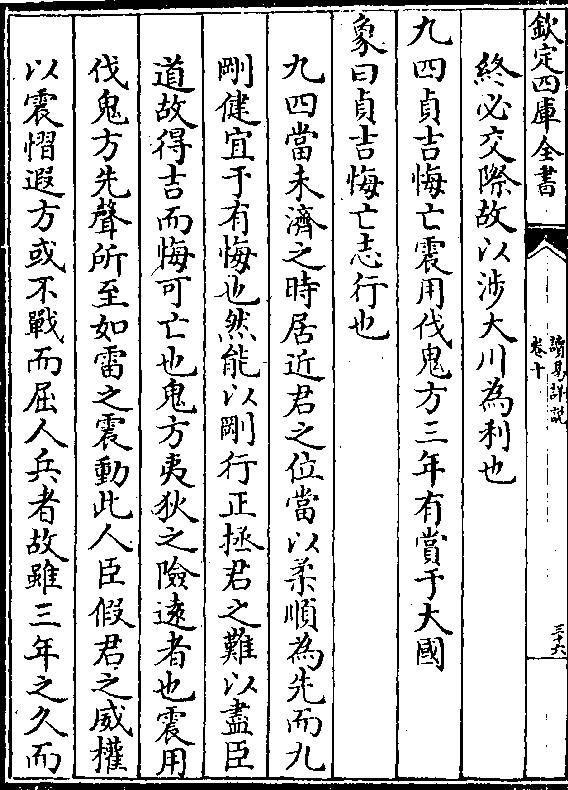 欽定四庫全書
讀易詳說
卷十
三十六
終必交際故以涉大川為利也
九四貞吉悔亡震用伐鬼方三年有賞于大國
象曰貞吉悔亡志行也
九四當未濟之時居近君之位當以柔順為先而九
剛健宜于有悔也然能以剛行正拯君之難以盡臣
道故得吉而悔可亡也鬼方夷狄之險遠者也震用
伐鬼方先聲所至如雷之震動此人臣假君之威權
以震慴遐方或不戰而屈人兵者故雖三年之久而